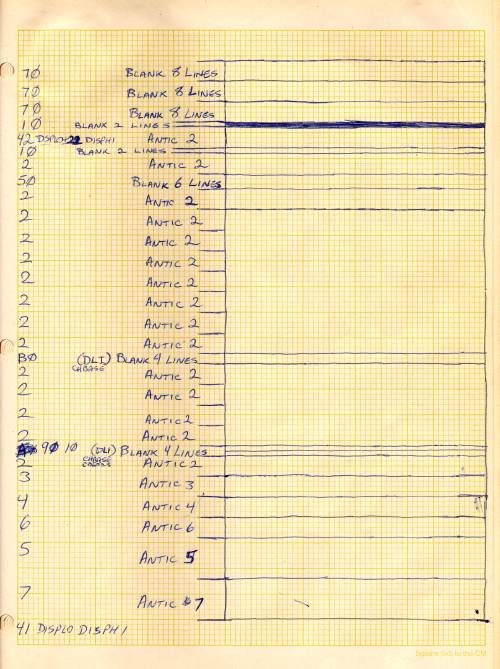 7Ø BLANK 8 LINES
7Ø BLANK 8 LINES
7Ø BLANK 8 LINES
1Ø BLANK 2 LINES
42 DSPLO DISPHI ANTIC 2
1Ø BLANK 2 LINES
2 ANTIC 2
5Ø BLANK 6 LINES
2 ANTIC 2
2 ANTIC 2
2 ANTIC 2
2 ANTIC 2
2 ANTIC 2
2 ANTIC 2
2 ANTIC 2
2 ANTIC 2
BØ (DLI) BLANK 4 LINES
CHBASE
2 ANTIC 2
2 ANTIC 2
2 ANTIC 2
2 ANTIC 2
9Ø 10 (DLI) BLANK 4 LINES
CHBASE
2 ANTIC 2
3 ANTIC 3
4 ANTIC 4
6 ANTIC 6
5 ANTIC 5
7 ANTIC 7
41 DISPLO DISPHI
Square 5x5 to the CM